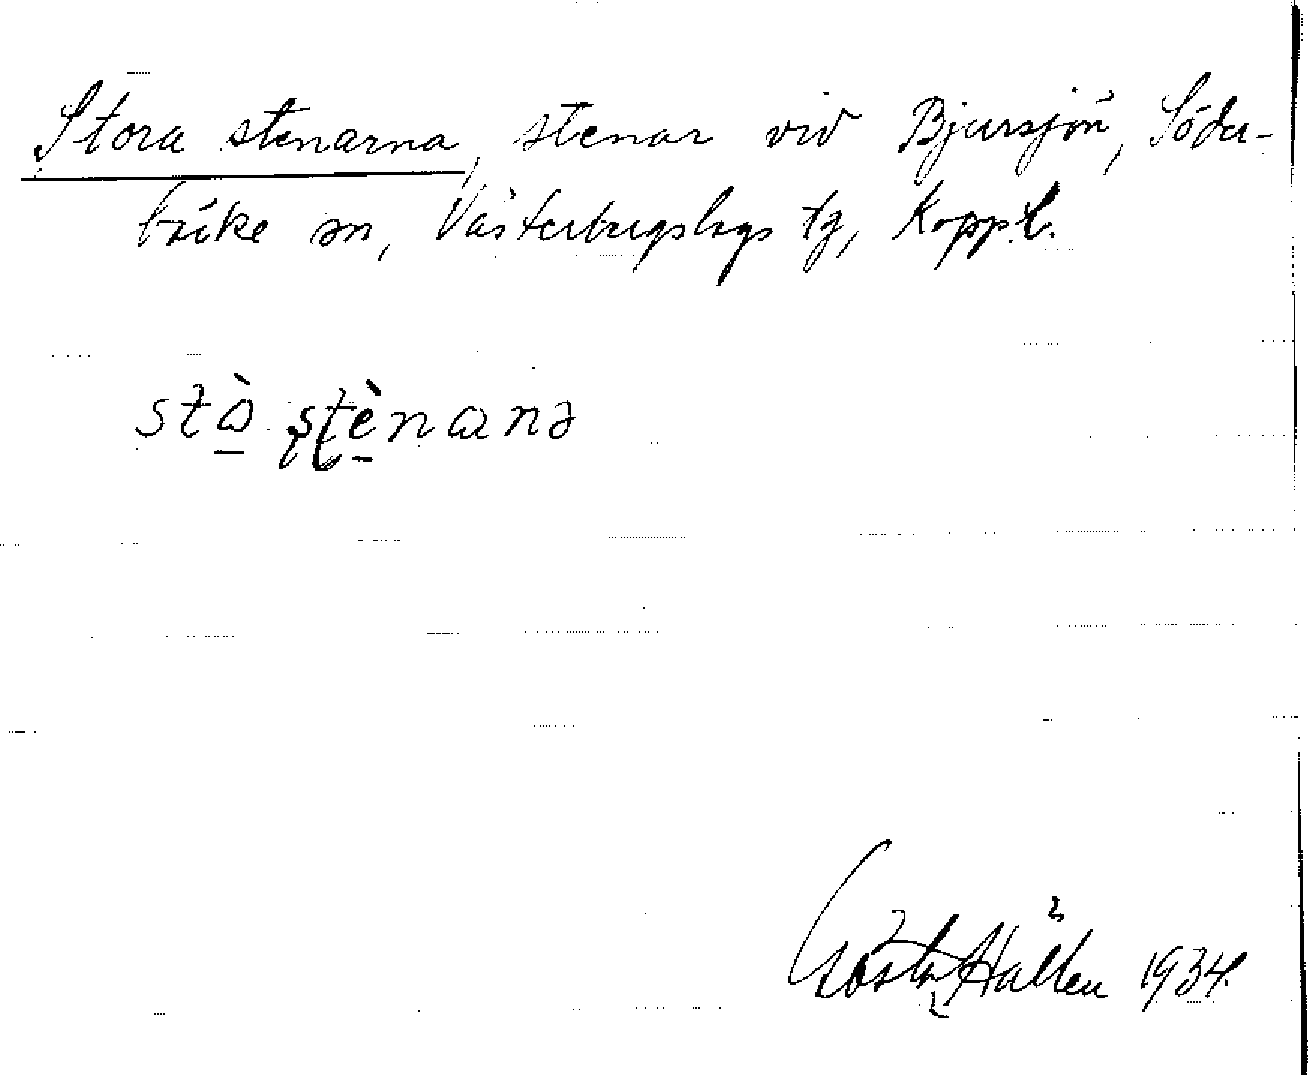 Stora stenarna, stenar vid Bjursjön, Söder-
bärke sn, Västerbergslags tg, Koppb.
stà stènanə
Gösta Hallén 1934.